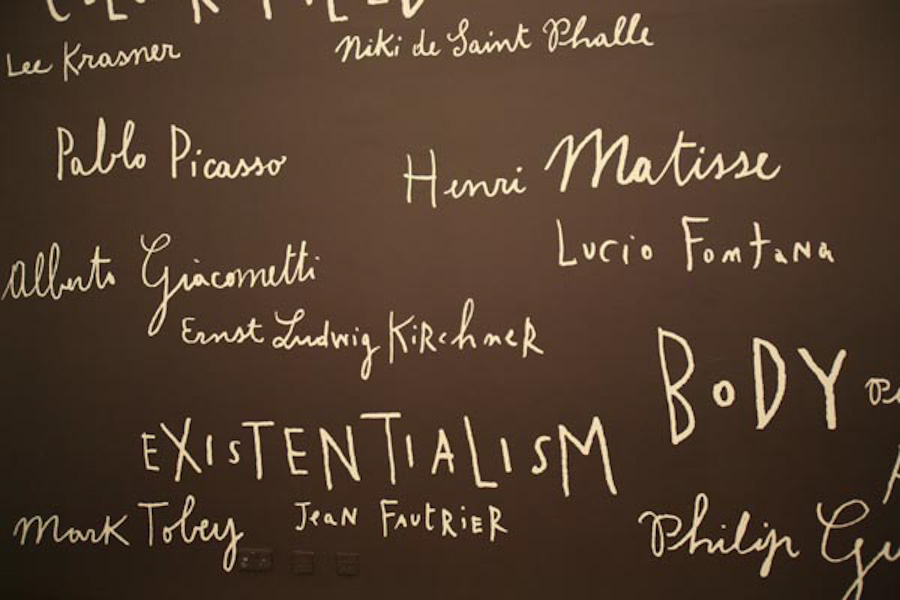 Lee Krasner
Niki de Saint Phalle
Pablo Picasso
Henri Matisse
Lucio Fontana
Alberto Giacometti
Ernst Ludwig Kirchner
BODY
EXISTENTIALISM
Mark Tobey
Jean Fautrier
Philip